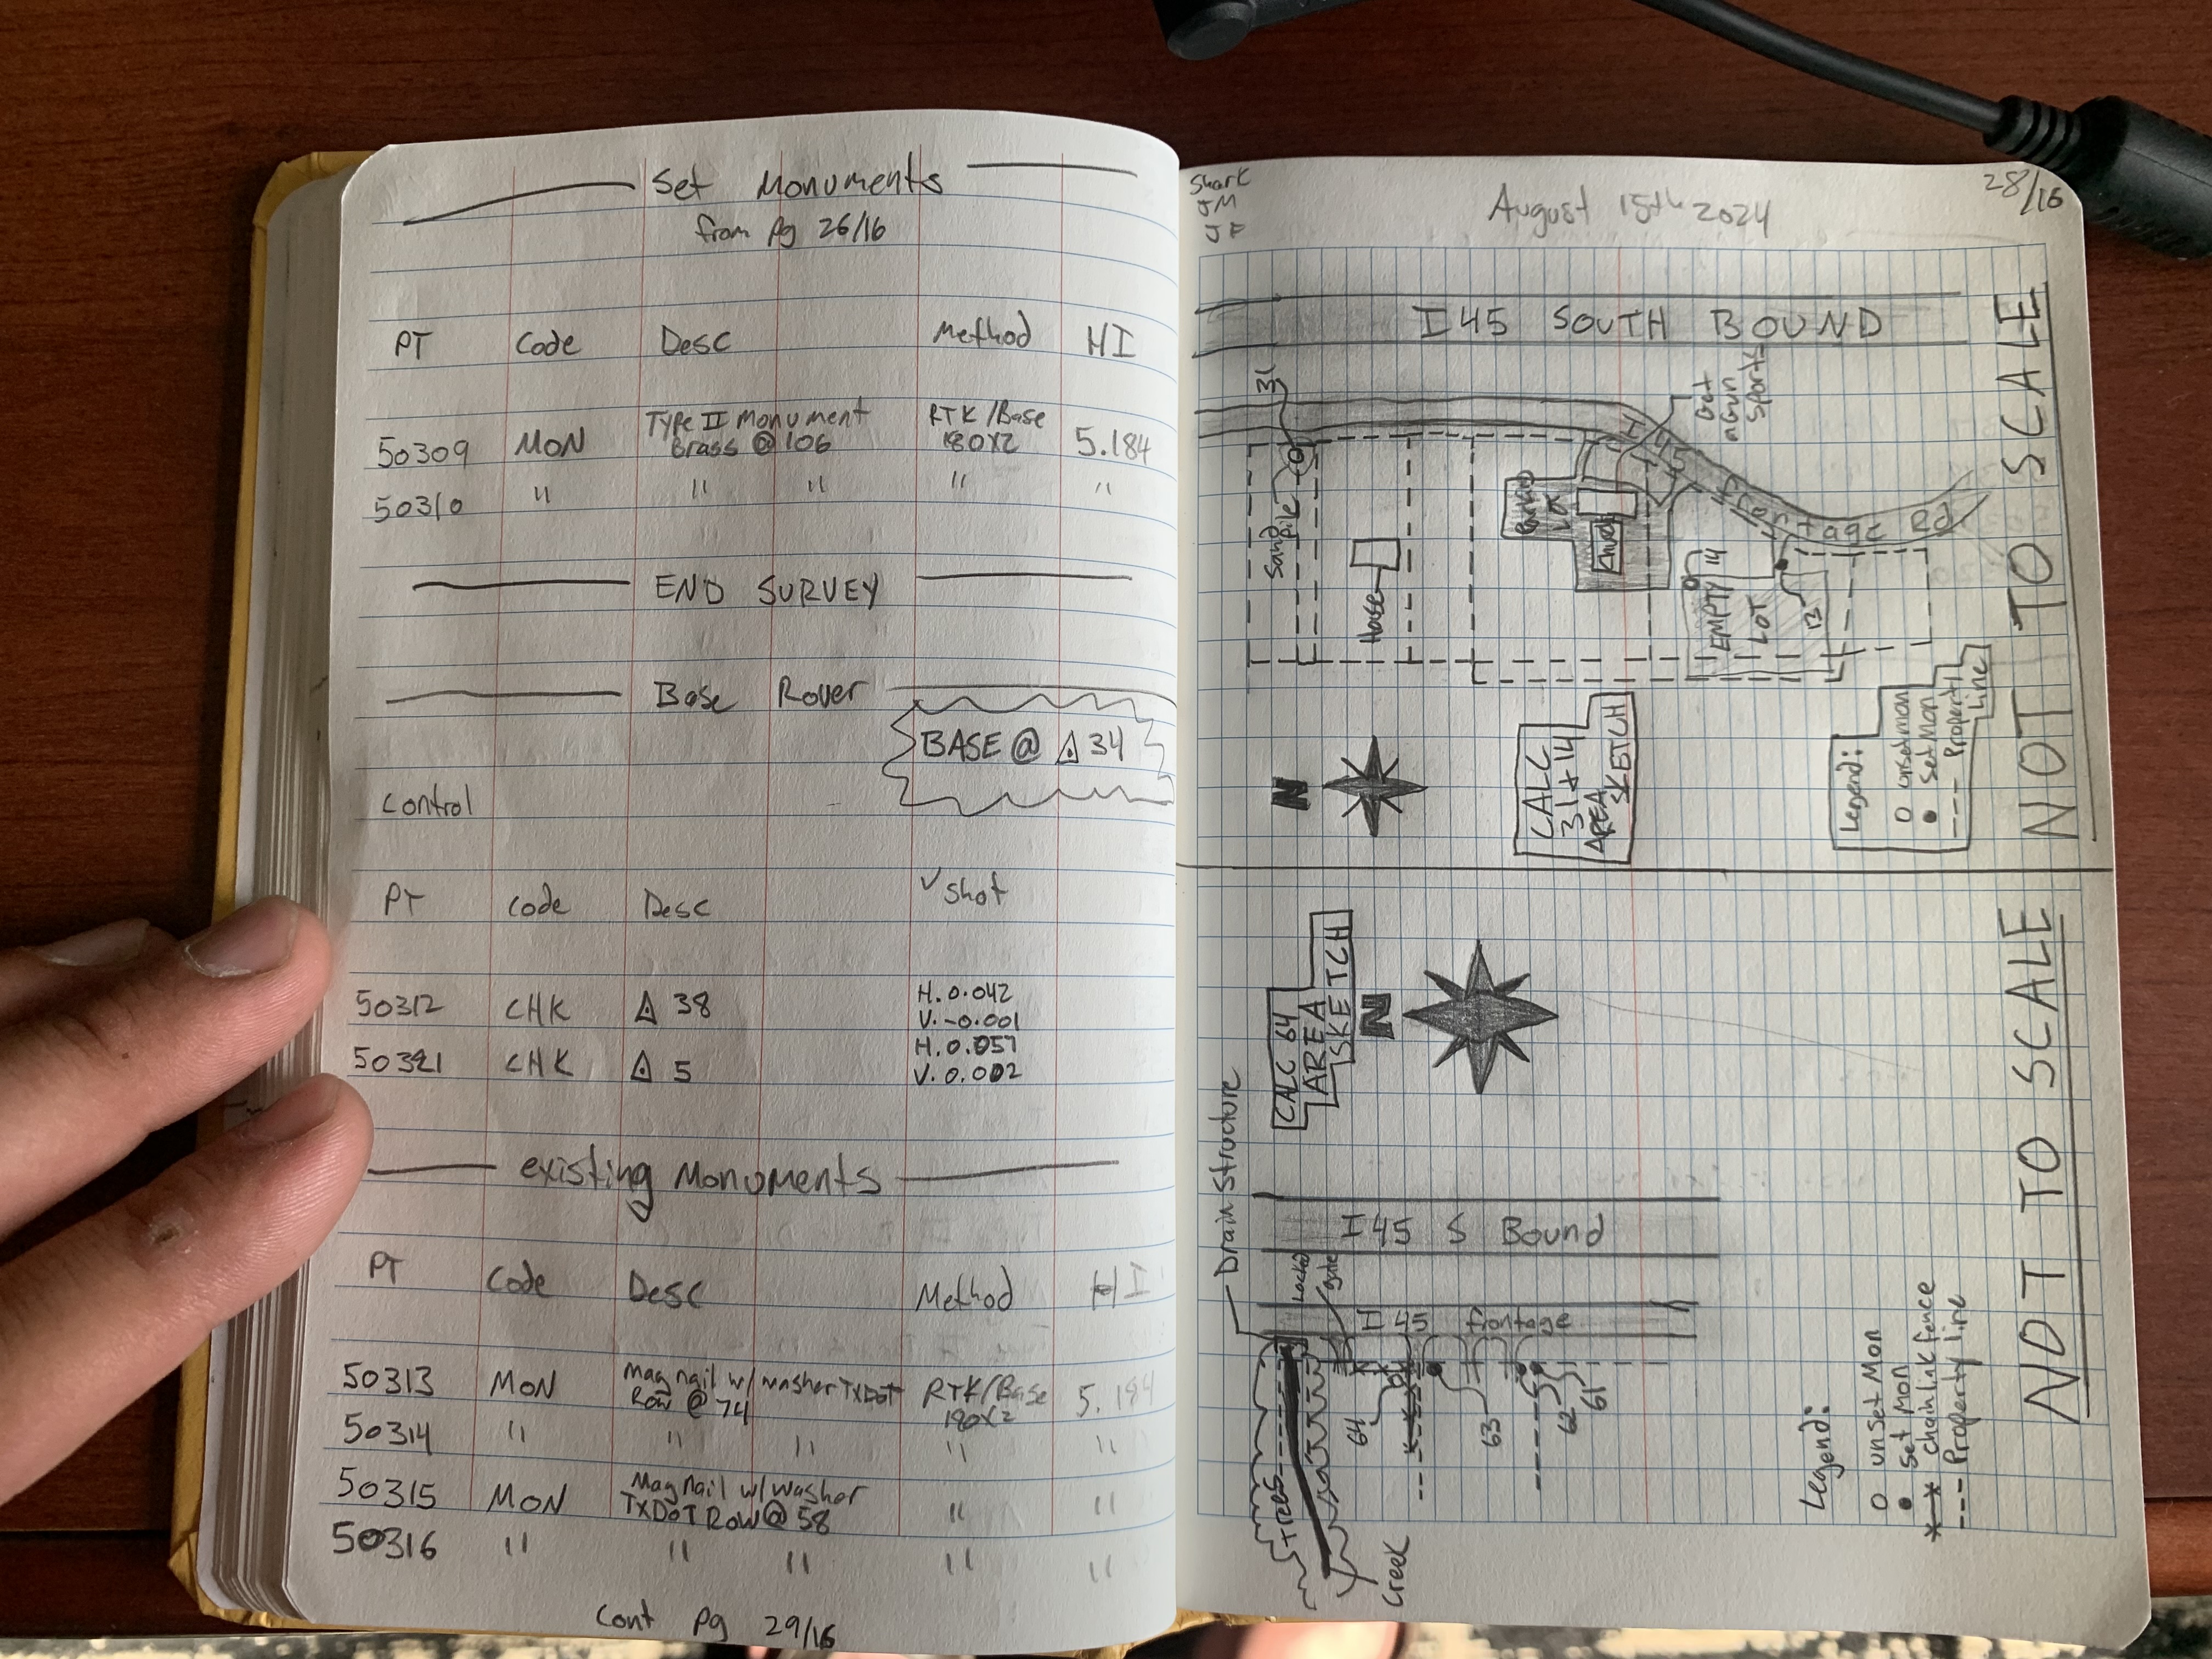 Set Monuments
from Pg 26/16
PT Code Desc Method HI
50309 MON Type II Monument Brass @ 106 RTK/Base 180X2 5.184
50310 " " " " "
END SURVEY
Base Rover
BASE @ △ 34
Control
PT Code Desc ✓ Shot
50312 CHK △ 38 H. 0.042
V. -0.001
50321 CHK △ 5 H. 0.057
V. 0.002
existing Monuments
PT Code Desc Method HI
50313 MON Mag nail w/ washer TxDOT Row @ 74 RTK/Base 180X2 5.184
50314 " " " " "
50315 MON Mag nail w/ washer TxDOT ROW @ 58 " "
50316 " " " " "
Cont Pg 29/16
Shark
JM
JF
August 15th 2024
28/16
I 45 SOUTH BOUND
31
Get
Sports
I 45 frontage Rd
Sand Pile
House
Parking Lot
Church
EMPTY LOT
14
13
N
CALC
31 + 14
AREA
SKETCH
Legend:
O unset mon
● Set Mon
--- Property Line
NOT TO SCALE
CALC 64
AREA
SKETCH
N
Drain Structure
I 45 S Bound
Locked gate
I 45 frontage
64
63
62
61
Trees
Creek
Legend:
O unset Mon
● Set Mon
* * chainlink fence
--- Property line
NOT TO SCALE